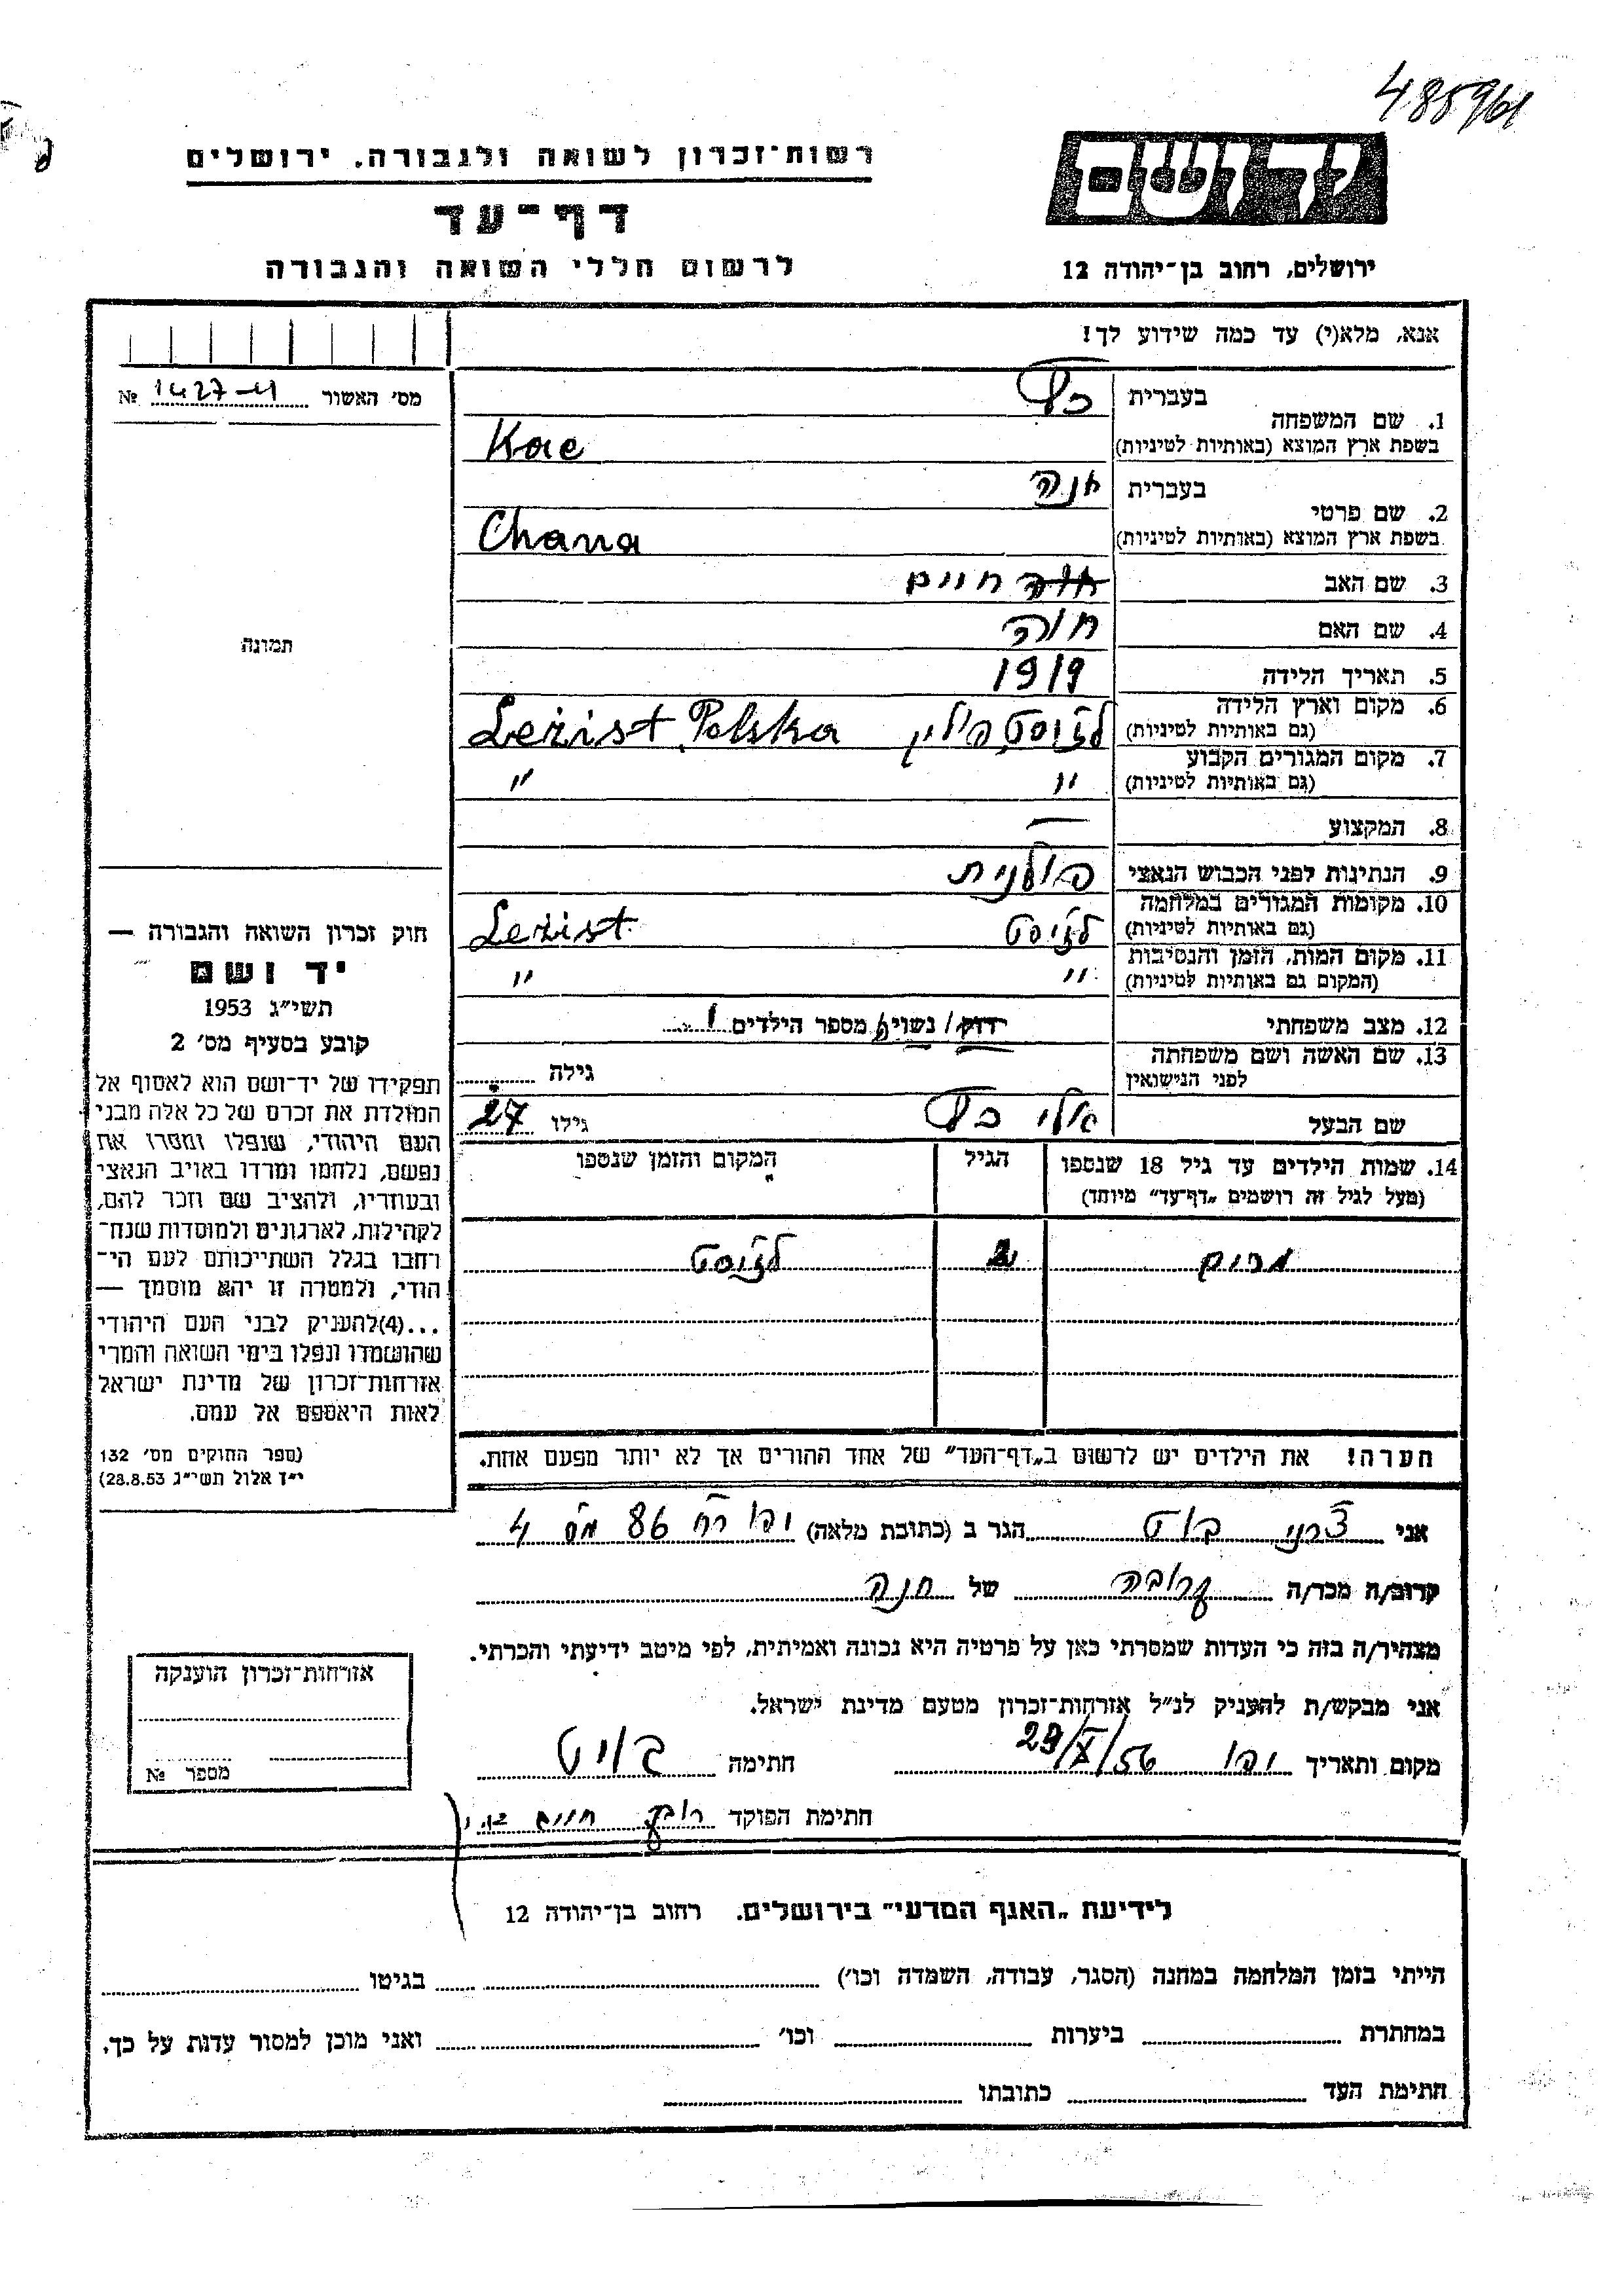 485961
רשות־זכרון לשואה ולגבורה, ירושלים
דף־עד
לרשום חללי השואה והגבורה
יד ושם
ירושלים, רחוב בן־יהודה 12
אנא, מלא(י) עד כמה שידוע לך!
מס׳ האשור 1427-11 №
תמונה
1. שם המשפחה
בעברית כץ
בשפת ארץ המוצא (באותיות לטיניות) Kac
2. שם פרטי
בעברית חנה
בשפת ארץ המוצא (באותיות לטיניות) Chana
3. שם האב חיים
4. שם האם חוה
5. תאריך הלידה 1919
6. מקום וארץ הלידה
(גם באותיות לטיניות) פולין Leżist Polska
7. מקום המגורים הקבוע
(גם באותיות לטיניות) " "
8. המקצוע —
9. הנתינות לפני הכבוש הנאצי פולנית
10. מקומות המגורים במלחמה
(גם באותיות לטיניות) Leżist
11. מקום המות, הזמן והנסיבות
(המקום גם באותיות לטיניות) " "
12. מצב משפחתי רווק / נשוי/ה מספר הילדים 1
13. שם האשה ושם משפחתה
לפני הנישואין גילה
שם הבעל כץ גילו 27
14. שמות הילדים עד גיל 18 שנספו
(מעל לגיל זה רושמים „דף־עד" מיוחד)
הגיל
המקום והזמן שנספו
מרים 2
הערה! את הילדים יש לרשום ב„דף־העד" של אחד ההורים אך לא יותר מפעם אחת.
חוק זכרון השואה והגבורה —
יד ושם
תשי"ג 1953
קובע בסעיף מס׳ 2
תפקידו של יד־ושם הוא לאסוף אל
המולדת את זכרם של כל אלה מבני
העם היהודי, שנפלו ומסרו את
נפשם, נלחמו ומרדו באויב הנאצי
ובעוזריו, ולהציב שם וזכר להם,
לקהילות, לארגונים ולמוסדות שנח־
רחבו בגלל השתייכותם לעם הי־
הודי, ולמטרה זו יהא מוסמך —
...(4)להעניק לבני העם היהודי
שהושמדו ונפלו בימי השואה והמרי
אזרחות־זכרון של מדינת ישראל
לאות היאספם אל עמם.
(ספר החוקים מס׳ 132
י"ז אלול תשי"ג 28.8.53)
אני הגר ב (כתובת מלאה) יפו רח 86 מס 4
קרוב/ה מכר/ה קרובה של חנה
מצהיר/ה בזה כי העדות שמסרתי כאן על פרטיה היא נכונה ואמיתית, לפי מיטב ידיעתי והכרתי.
אני מבקש/ת להעניק לנ"ל אזרחות־זכרון מטעם מדינת ישראל.
מקום ותאריך יפו 29/X/56 חתימה
חתימת הפוקד
אזרחות־זכרון הוענקה
מספר №
לידיעת „האגף המדעי" בירושלים, רחוב בן־יהודה 12
הייתי בזמן המלחמה במחנה (הסגר, עבודה, השמדה וכו׳) בגיטו
במחתרת ביערות וכו׳ ואני מוכן למסור עדות על כך.
חתימת העד כתובתו